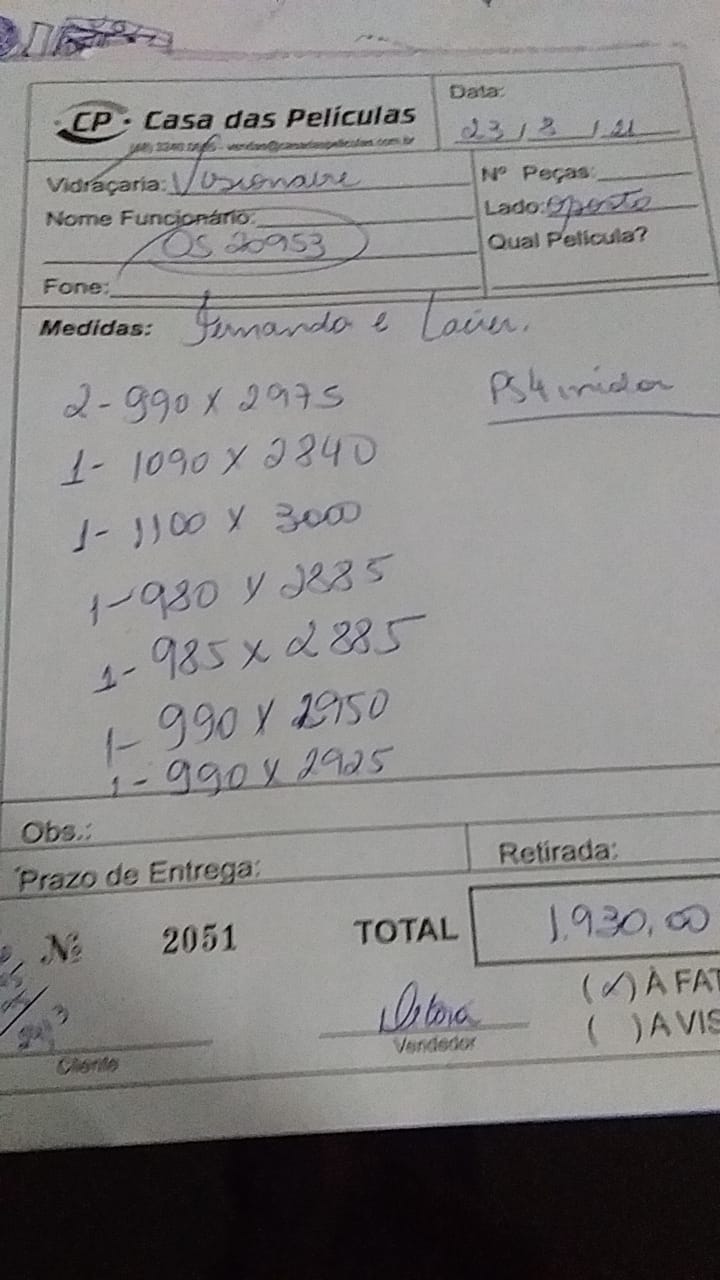 CP · Casa das Películas
Data:
23/8/21
Vidraçaria: Visionaire
Nº Peças:
Nome Funcionário:
Lado: oposto
OS 20953
Qual Película?
Fone:
Medidas: Fernando e
2- 990 x 2975
PS4
1- 1090 x 2840
1- 1100 x 3000
1- 980 x 2885
1- 985 x 2885
1- 990 x 2950
1- 990 x 2925
Obs.:
Prazo de Entrega:
Retirada:
Nº 2051
TOTAL
1.930,00
(x) À FAT
( ) A VIS
Debora
Vendedor
Cliente